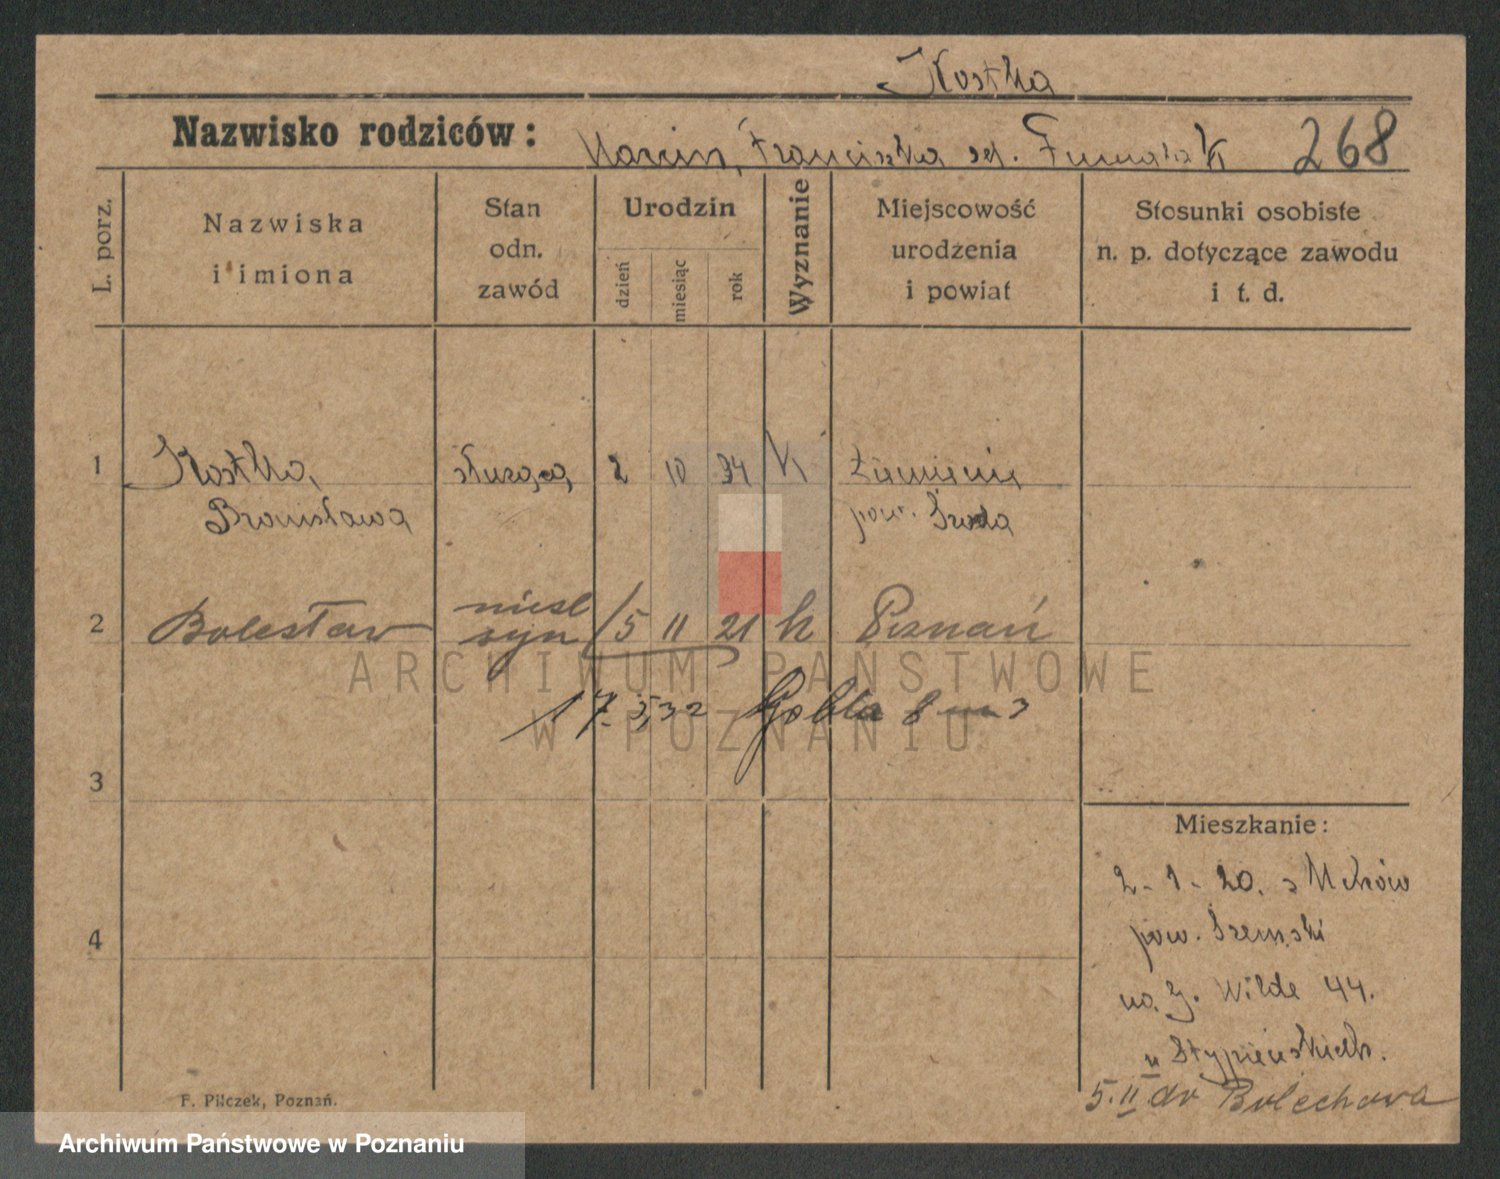 Kostka
Nazwisko rodziców: Marcin, Franciszka 268
L. porz.
Nazwiska
i imiona
Stan
odn.
zawód
Urodzin
dzień
miesiąc
rok
Wyznanie
Miejscowość
urodzenia
i powiat
Stosunki osobiste
n. p. dotyczące zawodu
i t. d.
1 Kostka, służąca, 2 10 94 K
Bronisława pow. Środa
2 Bolesław nieśl. syn 15 11 21 k Poznań
ARCHIWUM PAŃSTWOWE
17. 5. 32 8 m 3
W POZNANIU
3
Mieszkanie:
2 - 1 - 20. z
4
pow. Śremski
na G. Wilde 44.
u
5. II do Bolechowa
F. Pilczek, Poznań.
Archiwum Państwowe w Poznaniu